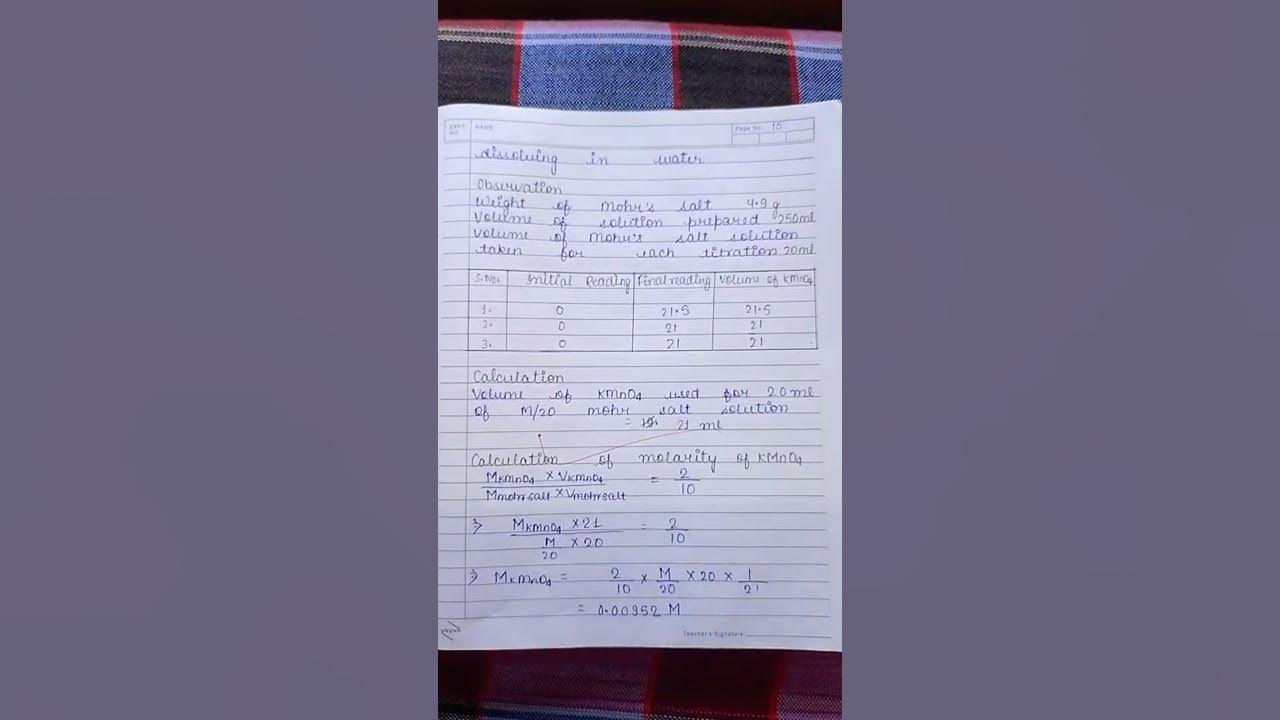 EXPT. NO.
NAME
Page No. 10
dissolving in water
Observation
Weight of mohr's salt 4.9 g
Volume of solution prepared 250ml
Volume of Mohr's salt solution
taken for each titration 20ml
S.No. Initial Reading Final reading Volume of KMnO4
1. 0 21.5 21.5
2. 0 21 21
3. 0 21 21
Calculation
Volume of KMnO4 used for 20ml
of M/20 mohr salt solution
= 21 ml
Calculation of molarity of KMnO4
MKMnO4 × VKMnO4 / Mmohr salt × Vmohr salt = 2/10
⇒ MKMnO4 × 21 / M/20 × 20 = 2/10
⇒ MKMnO4 = 2/10 × M/20 × 20 × 1/21
= 0.00952 M
youva
Teacher's Signature: